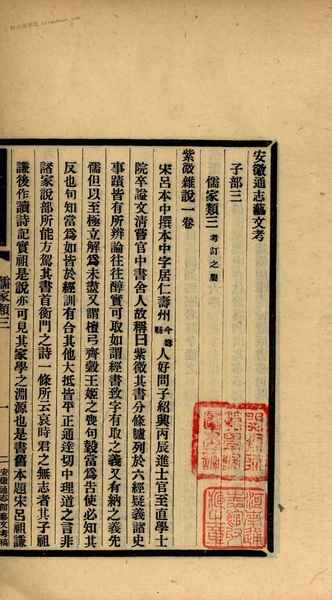 安徽通志藝文考
子部三
儒家類三 考訂之屬
紫微雜說一卷
宋呂本中撰本中字居仁壽州今壽縣人好問子紹興丙辰進士官至直學士
院卒諡文清舊官中書舍人故稱曰紫微其書分條臚列於六經疑義諸史
事蹟皆有所辨論往往醇實可取如謂經書致字有取之義又有納之義先
儒但以至極立解爲未盡又謂檀弓齊穀王姬之喪句穀當爲告使必知其
反也句知當爲如皆於經訓有合其他大抵皆平正通達切中理道之言非
諸家說部所能方駕其書首衡門之詩一條所云哀時君之無志者其子祖
謙後作讀詩記實祖是說亦可見其家學之淵源也是書舊本題宋呂祖謙
儒家類三
一
安徽通志館藝文考稿